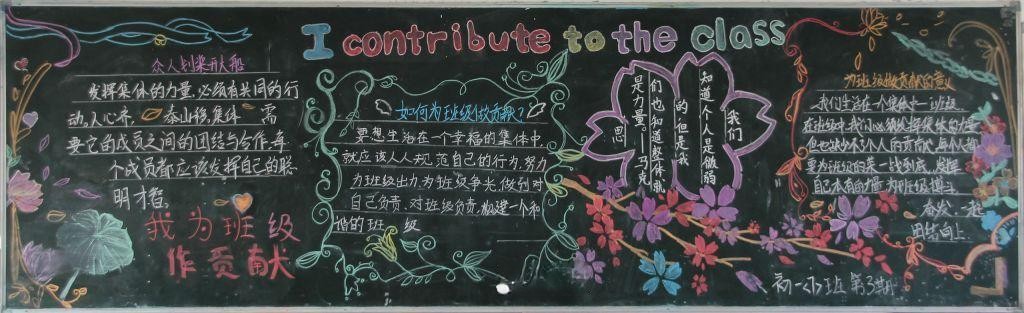 I contribute to the class
众人划桨开大船
发挥集体的力量,必须有共同的行
动,人心齐,泰山移,集体 需
要它的成员之间的团结与合作,每
个成员都应该发挥自己的聪
明才智。
我为班级
作贡献
如何为班级做贡献?
要想生活在一个幸福的集体中,
就应该人人规范自己的行为,努力
为班级出力,为班级争光,做到对
自己负责,对班级负责,构建一个和
谐的班 级
我们
知道个人是微弱
的,但是我
们也知道整体就
是力量。——马克
思
为班级做贡献的意义
我们生活在一个集体中—班级
在班级中,我们必须发挥集体的力量
自己本有的力量,为班级
奋发,一起
团结向上。
高一 班 第3期